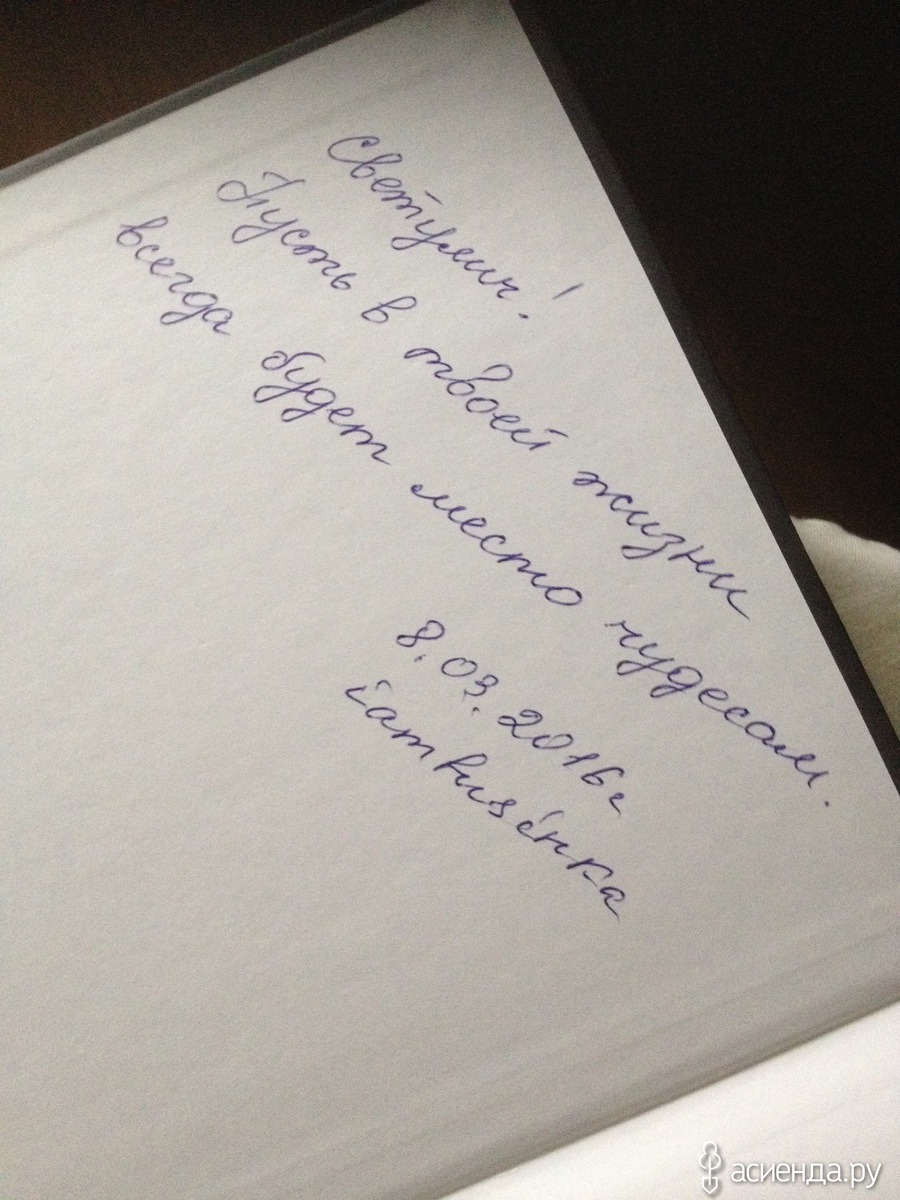 Светулич!
Пусть в твоей жизни
всегда будет место чудесам.
8.03.2016г
асиенда.ру